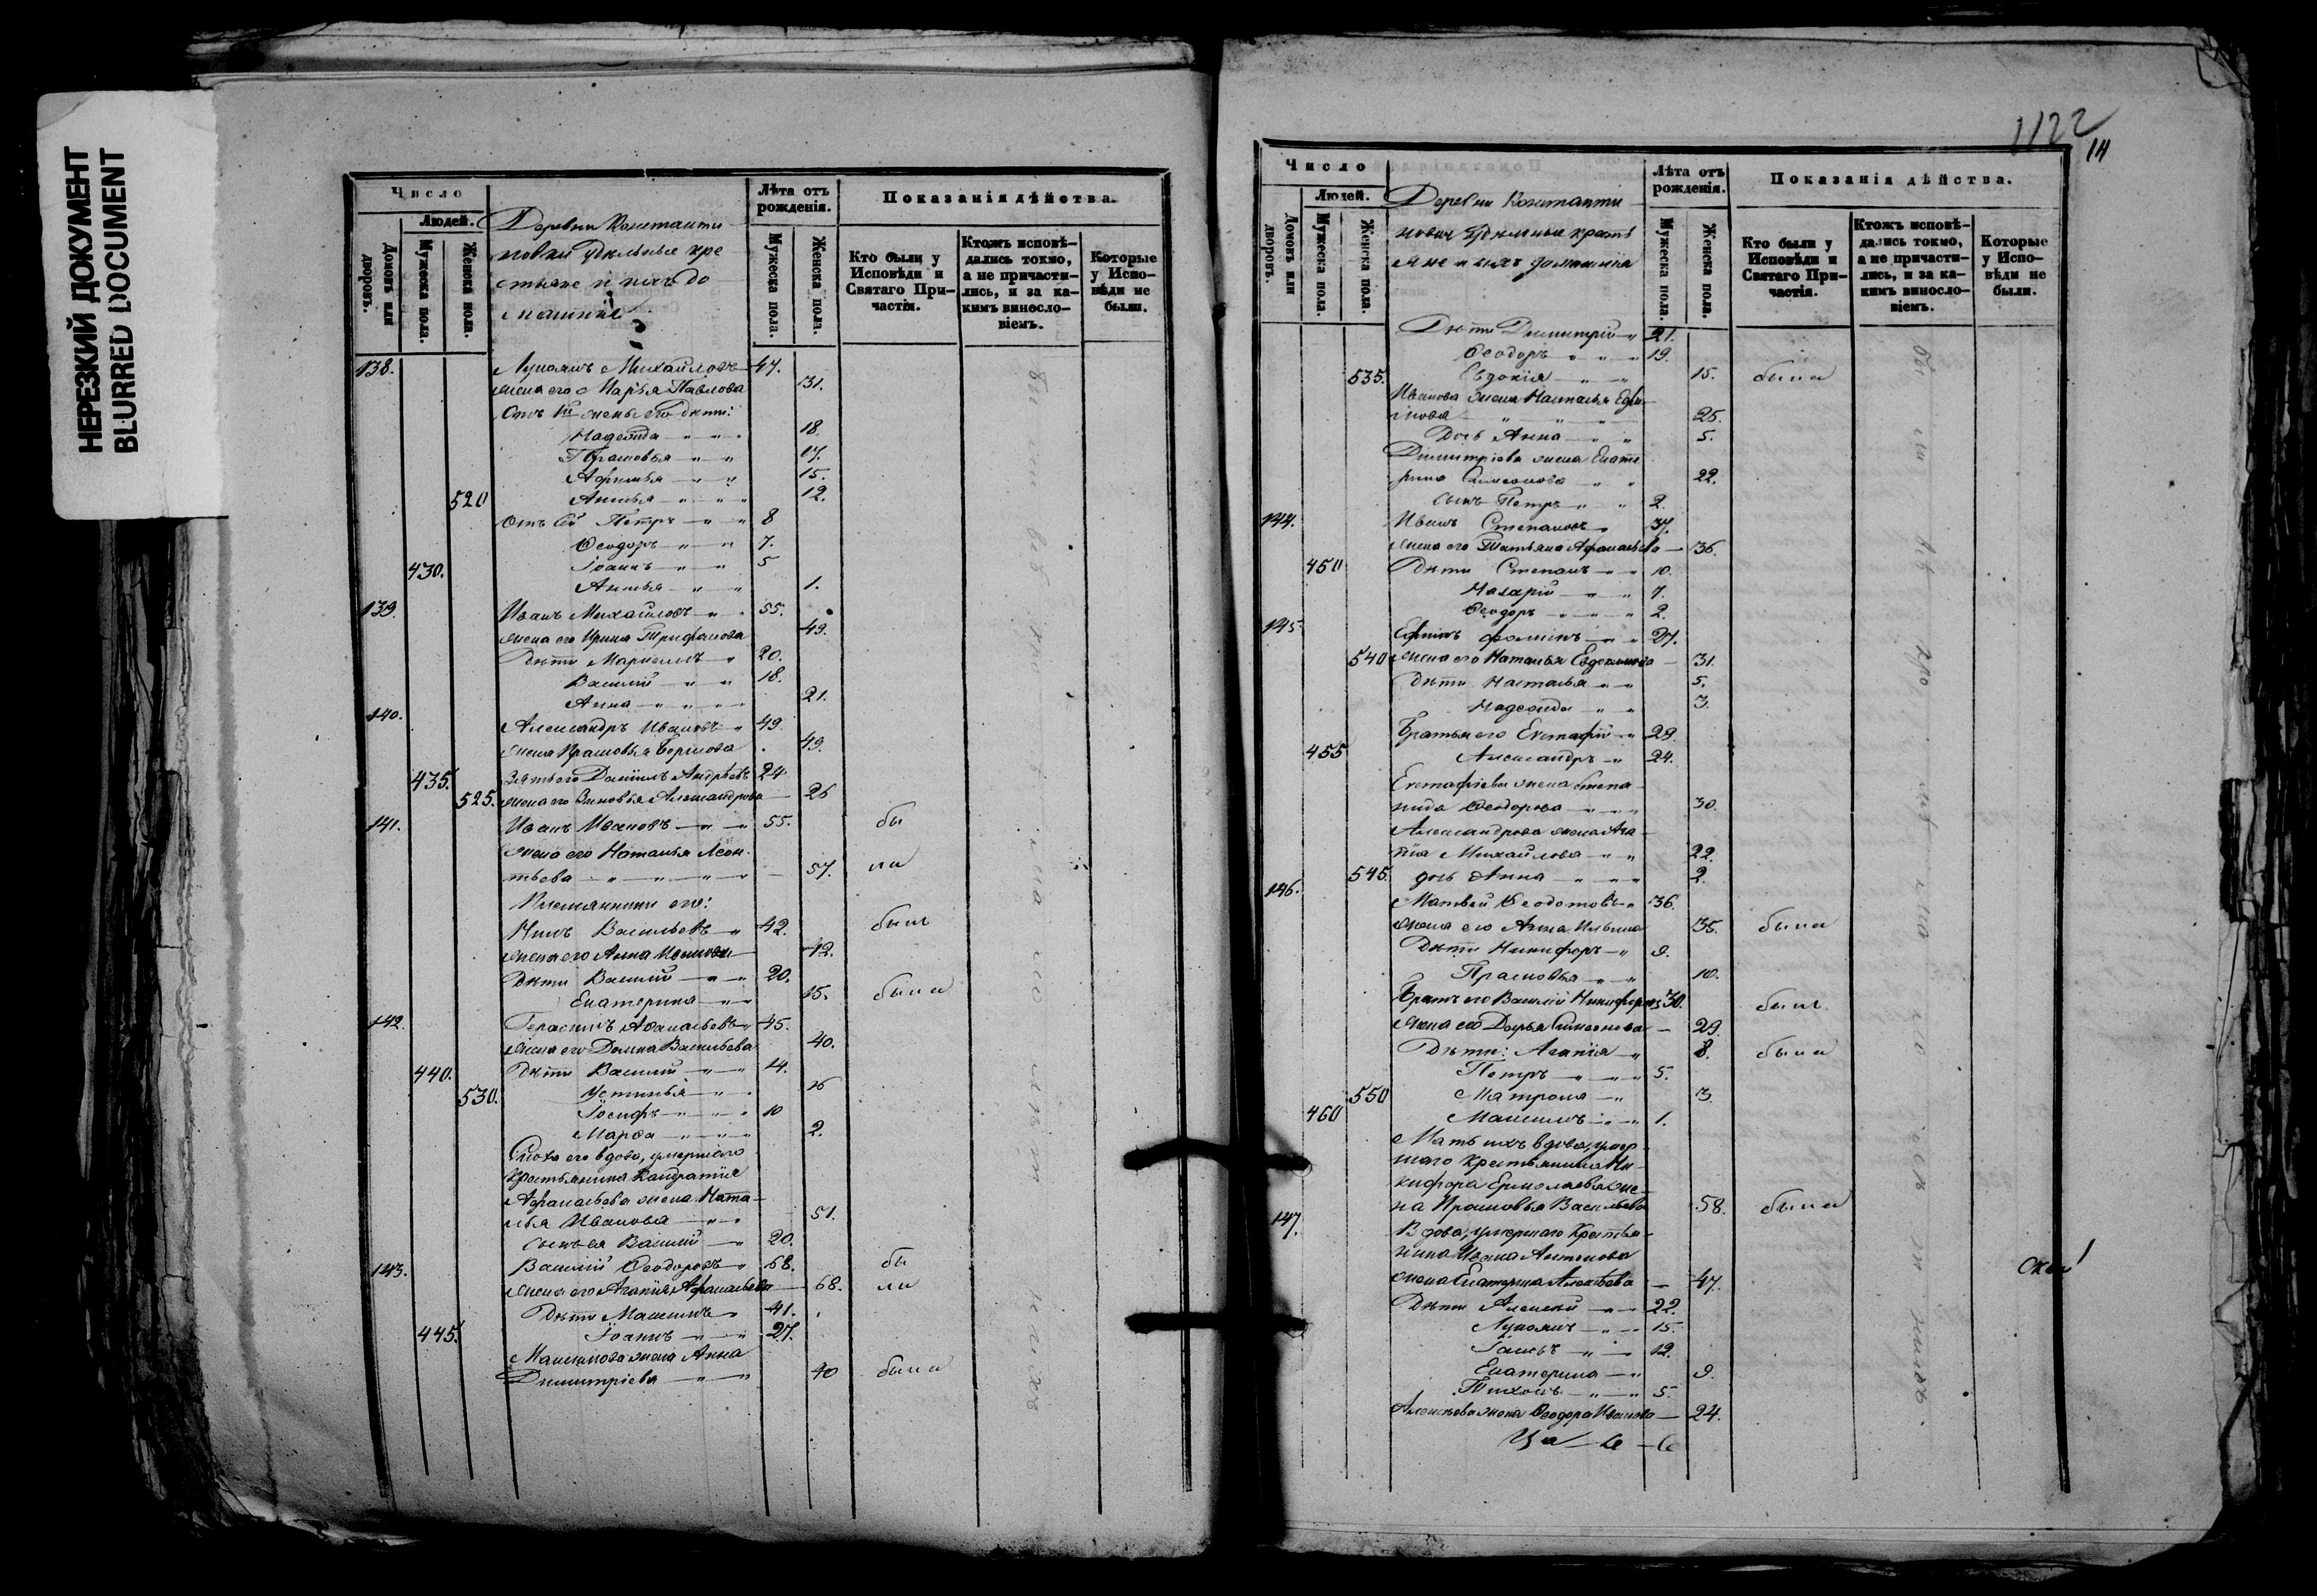 НЕРЕЗКИЙ ДОКУМЕНТ
BLURRED DOCUMENT
Число
Людей.
Домовъ или дворовъ.
Мужеска пола.
Женска пола.
Деревни Константи
новки удѣльные кре
стьяне и ихъ до
машніе
Лѣта отъ рожденія.
Мужеска пола.
Женска пола.
Показанія дѣйства.
Кто были у Исповѣди и Святаго При-частія.
Ктожъ исповѣ-дались токмо, а не причасти-лись, и за ка-кимъ винносло-віемъ.
Которые у Испо-вѣди не были.
138. Лукіянъ Михайловъ 47.
жена его Марья Павлова 31.
Отъ 1й жены его дѣти:
Надежда 18.
Прасковья 17.
Афимья 15.
520 Анисья 12.
Отъ сей Петръ 8
Ѳеодоръ 7.
430. Іоаннъ 5
Анисья 1.
139. Иванъ Михайловъ 55.
жена его Ирина Трифонова 49.
Дѣти 20.
Василій 18.
Анна 21.
140. Александръ Ивановъ 49
жена Прасковья Борисова 49.
435. Зять его Даніилъ Андреевъ 24
525. жена его Зиновья Александрова 26
141. Иванъ Ивановъ 55. бы
жена его Наталья Леон-
тьева 57. ли
Племянники его:
Васильевъ 42. былъ
жена его Анна 42.
Дѣти Василій 20.
Екатерина 15. была
142. Герасимъ Аѳанасьевъ 45.
жена его Домна Васильева 40.
440. Дѣти Василій 14.
530. Устинья 16
Іосифъ 10
Марѳа 2.
Сноха его вдова, умершаго
крестьянина Кондратія
Афанасьева жена Ната-
лья Иванова 51.
сынъ ея Василій 20.
143. Василій Ѳеодоровъ 68. бы
жена его Агапія Афанасьева 68. ли
Дѣти Максимъ 41.
445. Іоаннъ 27.
Максимова жена Анна
Димитріева 40 была
1122
14
Число
Людей.
Домовъ или дворовъ.
Мужеска пола.
Женска пола.
Деревни Константи
новки удѣльные кресть
яне и ихъ домашніе
Лѣта отъ рожденія.
Мужеска пола.
Женска пола.
Показанія дѣйства.
Кто были у Исповѣди и Святаго При-частія.
Ктожъ исповѣ-дались токмо, а не причасти-лись, и за ка-кимъ винносло-віемъ.
Которые у Испо-вѣди не были.
Дѣти Димитрій 21.
Ѳеодоръ 19.
535. Евдокія 15. была
Иванова жена Наталья Ефи-
мова 25.
Дочь Анна 5.
Димитріева жена Екате
рина Самсонова 22.
сынъ Петръ 2.
144. Иванъ Степановъ 37.
жена его Татьяна Афанасьева 36.
450 Дѣти Степанъ 10.
Назарій 7.
Ѳеодоръ 2.
145. Ефимъ Фоминъ 27.
540 жена его Наталья Евдокимова 31.
Дѣти Наталья 5.
Надежда 3.
Братья его Евстафій 29.
455 Александръ 24.
Евстафіева жена Степа-
нида Ѳеодорова 30.
Александрова жена Ага-
пія Михайлова 22.
545. дочь Анна 2.
146. Матвей Ѳеодотовъ 36.
жена его Анна Ильина 35. была
Дѣти Никифоръ 9.
Прасковья 10.
Братъ его Василій Никифоровъ 30. былъ
жена его Дарья Симеонова 29.
Дѣти: Агапія 8. была
Петръ 5.
550 Матрона 3
460 Максимъ 1.
Мать ихъ вдова, умер-
шаго крестьянина Ни-
кифора Ермолаева же-
на Прасковья Васильева 58. была
147. Вдова, умершаго крестья-
нина Ивана Антонова
жена Екатерина Алексѣева 47.
Дѣти Алексей 22.
Лукіянъ 15.
Іаковъ 12.
Екатерина 9.
Тихонъ 5.
Алексеева жена Ѳеодора Иванова 24.